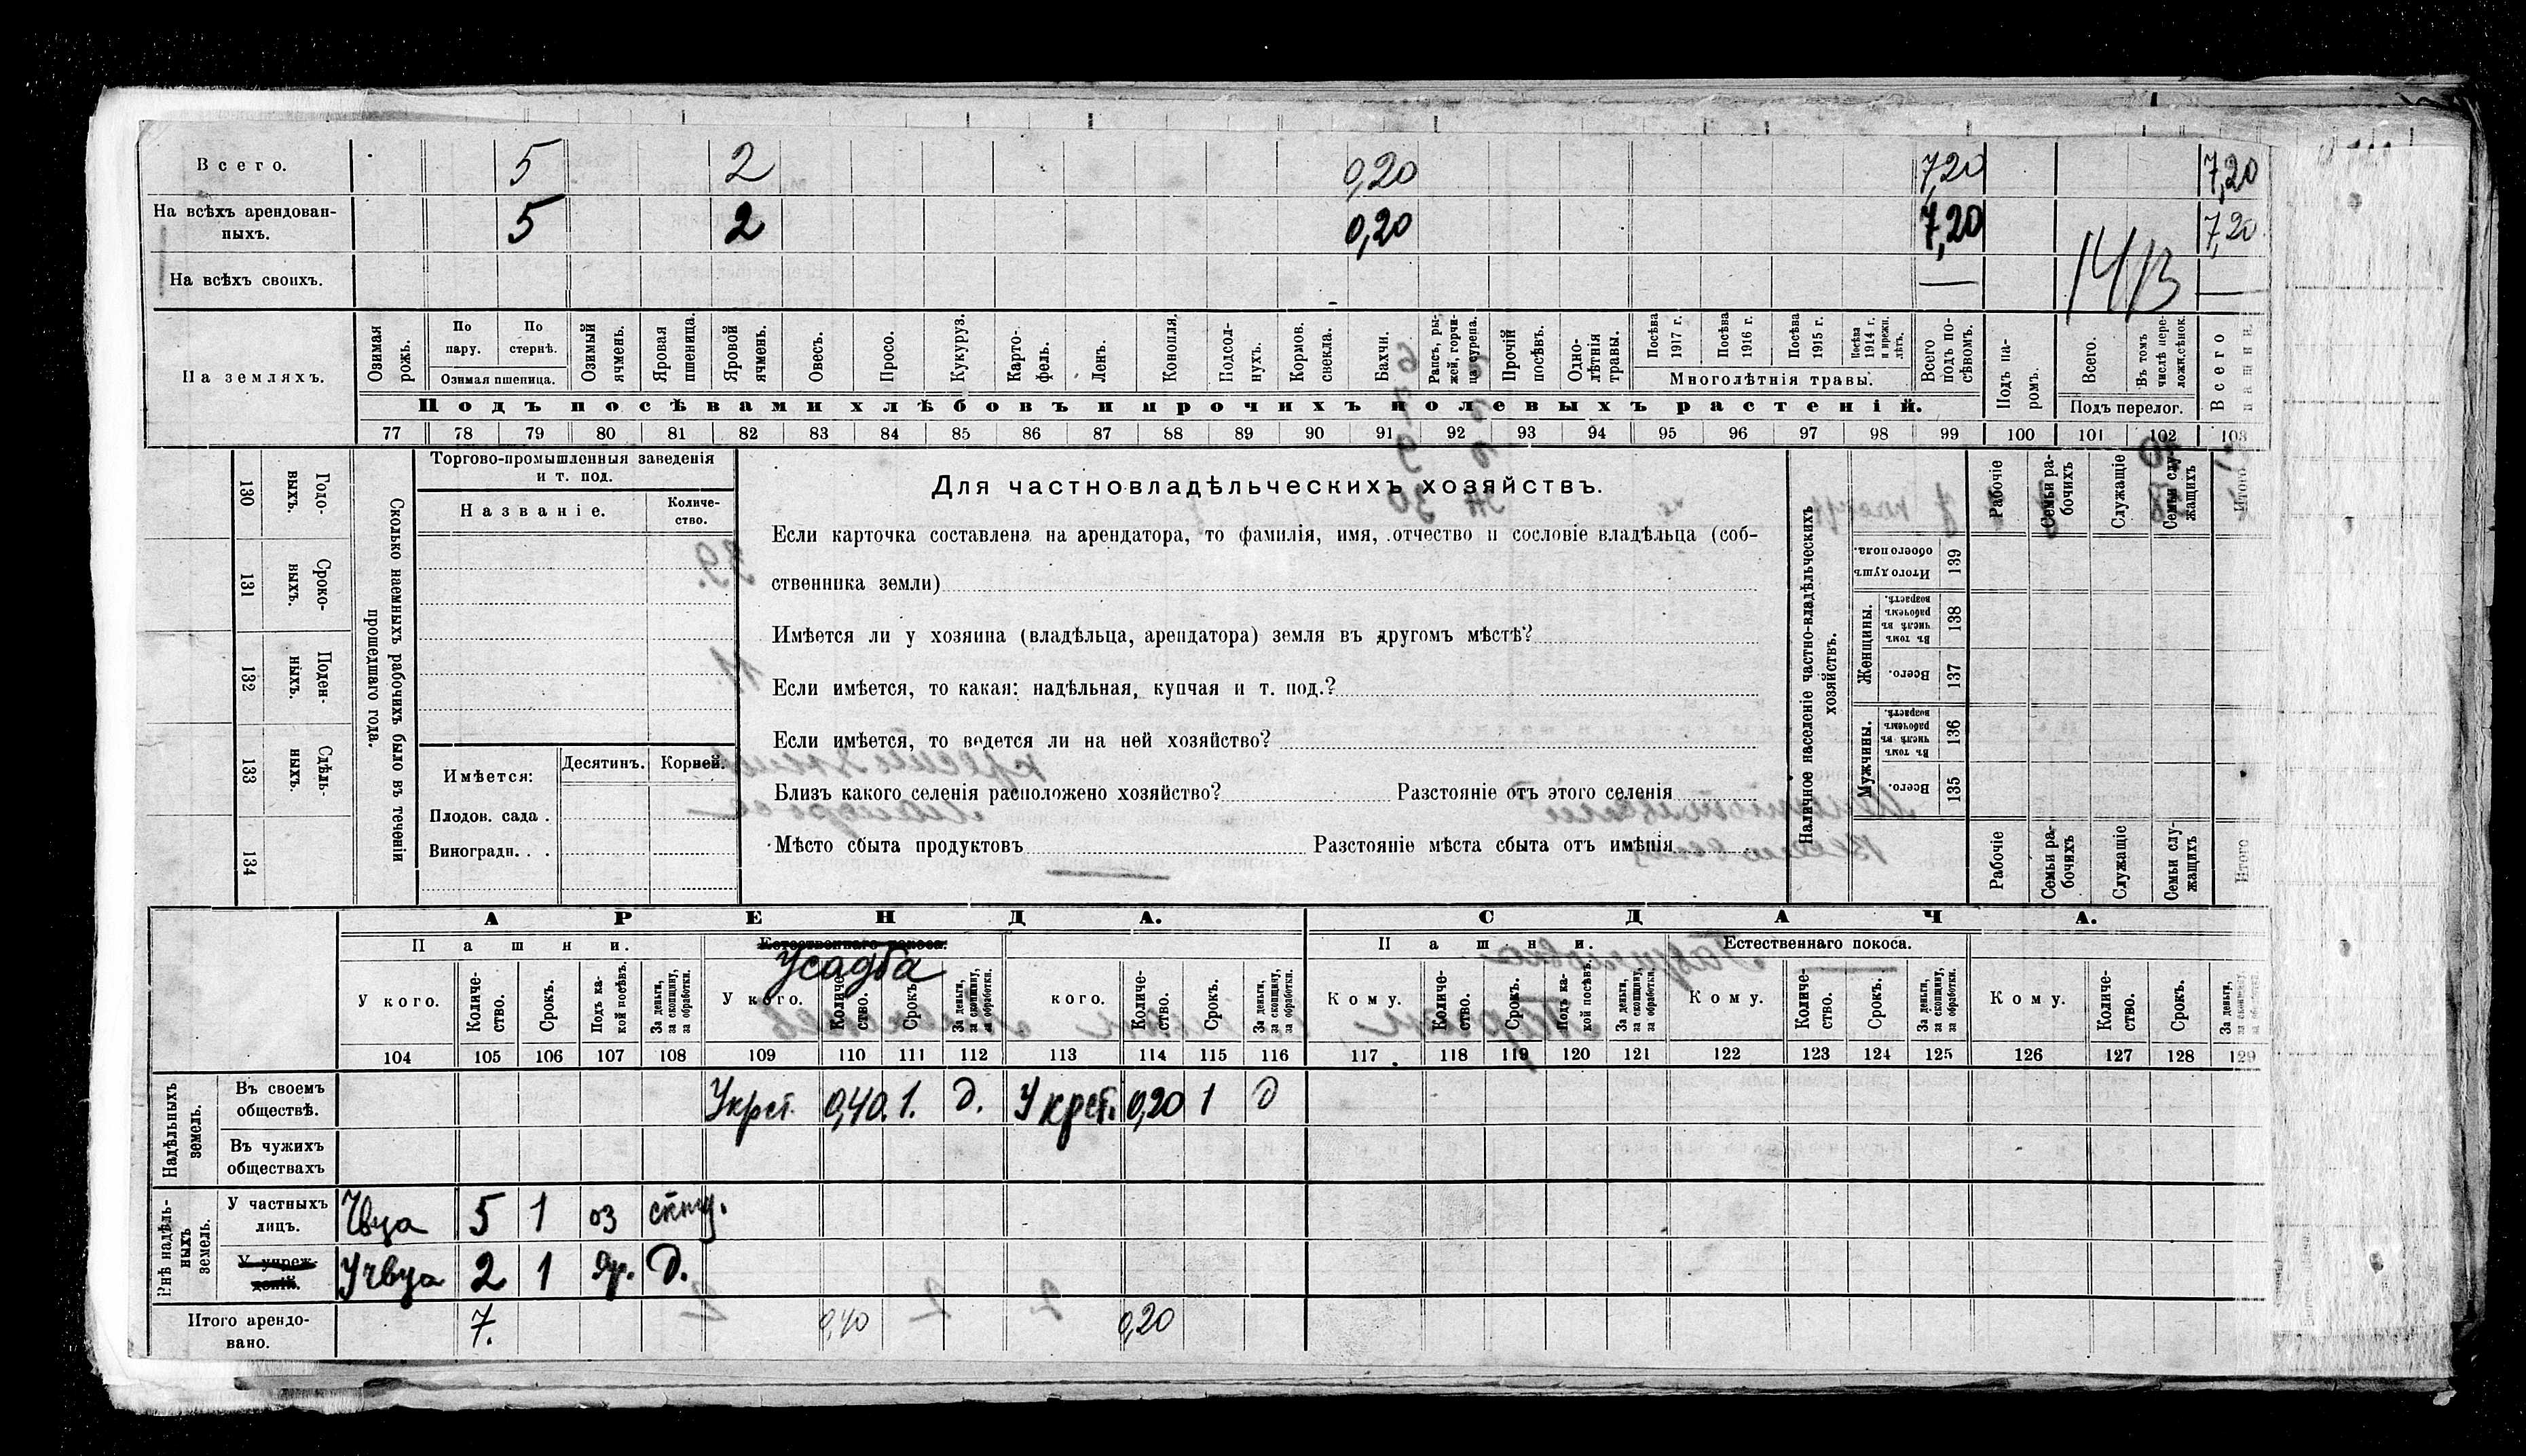 Всего. 5 2 0,20 7,20 7,20
На всѣхъ арендован-
ныхъ. 5 2 0,20 7,20 7,20
На всѣхъ своихъ. — —
14/В
На земляхъ.
Озимая рожь.
По пару.
По стернѣ.
Озимая пшеница.
Озимый ячмень.
Яровая пшеница.
Яровой ячмень.
Овесъ.
Просо.
Кукуруз.
Карто-
фель.
Ленъ.
Конопля.
Подсол-
нухъ.
Кормов.
свекла.
Бахчи.
Рапсъ, ры-
жей, горчи-
ца сурепа.
Прочій
посѣвъ.
Одно-
лѣтнія
травы.
Посѣва
1917 г.
Посѣва
1916 г.
Посѣва
1915 г.
Посѣва
1914 г.
и прежн.
лѣтъ.
Многолѣтнія травы.
Всего
подъ по-
сѣвомъ.
Подъ па-
ромъ.
Всего.
Въ томъ
числѣ пере-
ложсѣнок.
Подъ перелог.
Всего
пашни.
Подъ посѣвами хлѣбовъ и прочихъ полевыхъ растеній.
77 78 79 80 81 82 83 84 85 86 87 88 89 90 91 92 93 94 95 96 97 98 99 100 101 102 103
130 Годо-
выхъ.
131 Сроко-
выхъ.
132 Поден-
ныхъ.
133 Сдѣль-
ныхъ.
134
Сколько наемныхъ рабочихъ было въ теченіи
прошедшаго года.
Торгово-промышленныя заведенія
и т. под.
Названіе.
Количе-
ство.
Имѣется: Десятинъ. Корней.
Плодов. сада .
Виноградн. . .
Для частновладѣльческихъ хозяйствъ.
Если карточка составлена на арендатора, то фамилія, имя, отчество и сословіе владѣльца (соб-
ственника земли)
Имѣется ли у хозяина (владѣльца, арендатора) земля въ другомъ мѣстѣ?
Если имѣется, то какая: надѣльная, купчая и т. под.?
Если имѣется, то ведется ли на ней хозяйство?
Близъ какого селенія расположено хозяйство? Разстояніе отъ этого селенія
Мѣсто сбыта продуктовъ Разстояніе мѣста сбыта отъ имѣнія
Наличное населеніе частно-владѣльческихъ
хозяйствъ.
Рабочіе
Семьи ра-
бочихъ
Служащіе
Семьи слу-
жащихъ
Итого
139 Итого душъ
обоего пола.
Женщины.
138 Въ томъ
числѣ въ
рабочемъ
возрастѣ.
137 Всего.
Мужчины.
136 Въ томъ
числѣ въ
рабочемъ
возрастѣ.
135 Всего.
Рабочіе
Семьи ра-
бочихъ
Служащіе
Семьи слу-
жащихъ
Итого
АРЕНДА. СДАЧА.
Пашни. Естественнаго покоса. Пашни. Естественнаго покоса.
Усадба
У кого.
Количе-
ство.
Срокъ.
Подъ ка-
кой посѣвъ.
За деньги,
за скопщину,
за обработки.
У кого.
Количе-
ство.
Срокъ.
За деньги,
за скопщину,
за обработки.
кого.
Количе-
ство.
Срокъ.
За деньги,
за скопщину,
за обработки.
Кому.
Количе-
ство.
Срокъ.
Подъ ка-
кой посѣвъ.
За деньги,
за скопщину,
за обработки.
Кому.
Количе-
ство.
Срокъ.
За деньги,
за скопщину,
за обработки.
Кому.
Количе-
ство.
Срокъ.
За деньги,
104 105 106 107 108 109 110 111 112 113 114 115 116 117 118 119 120 121 122 123 124 125 126 127 128 129
Надѣльныхъ
земель.
Въ своемъ
обществѣ. У крст. 0,40. 1. д. У крст. 0,20 1 д
Въ чужихъ
обществахъ
Внѣ надѣль-
ныхъ
земель.
У частныхъ
лицъ. 5 1 оз
У учреж-
деній. У чвца 2 1 яр. д.
Итого арендо-
вано. 7. 0,40 0,20